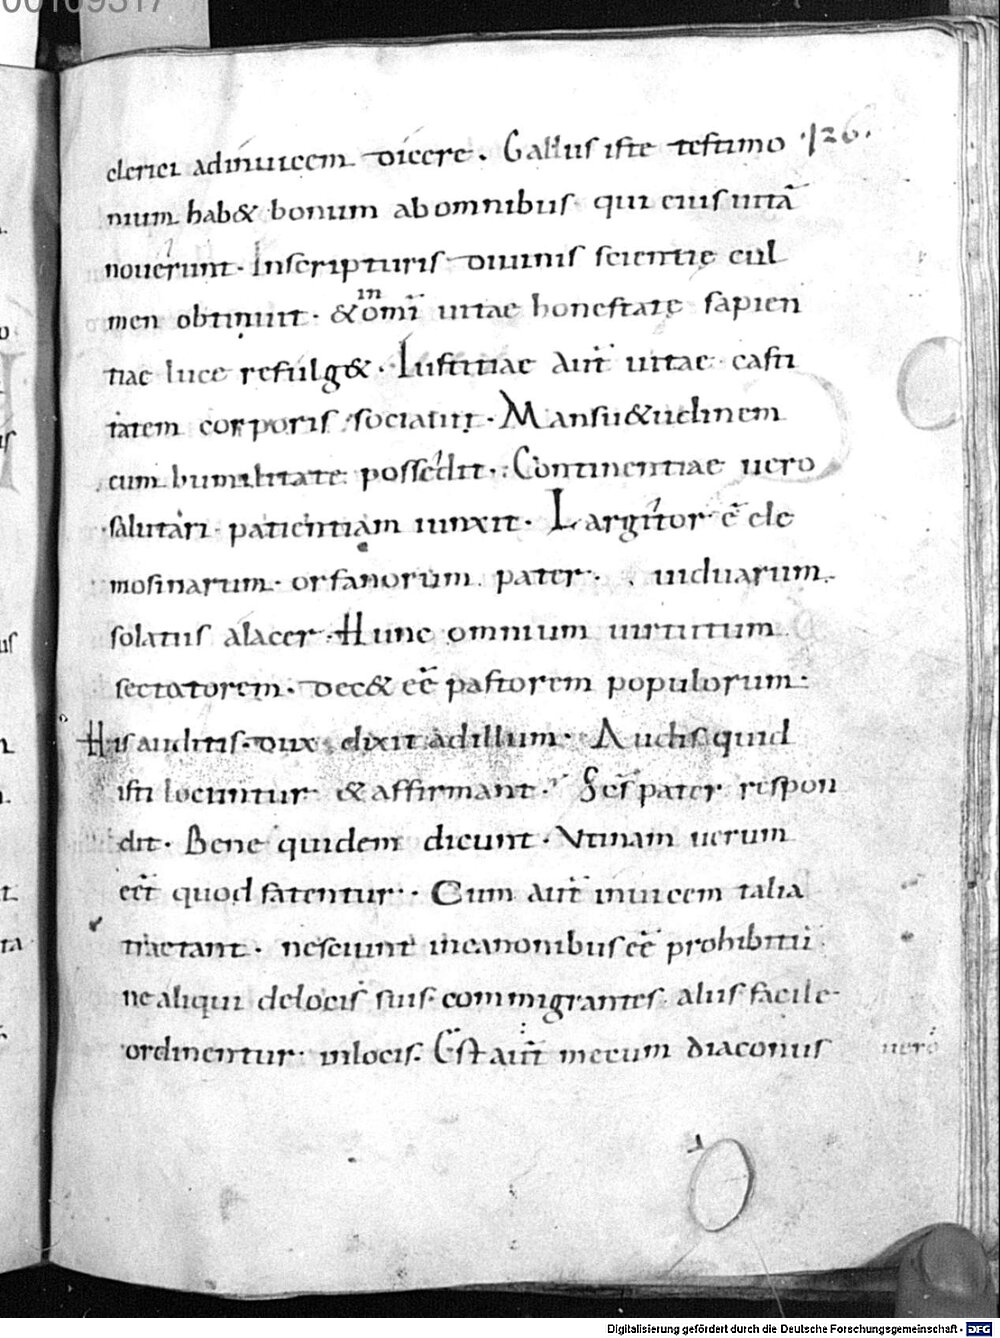 00109317
clerici adinuicem dicere. Gallus iste testimo ·126·
nium hab& bonum abomnibus qui eius uitā
nouerunt. Inscripturis diuinis scientię cul
men obtinuit. &omī uitae honestatę sapien
in
tiae luce refulg&. Iustitiae aūt uitae casti
tatem corporis sociauit. Mansu&udinem
cum humilitate possedit. Continentiae uero
salutari patientiam iunxit. Largitor ē ele
mosinarum. orfanorum pater. uiduarum
solatus alacer. Hunc omnium uirtutum
sectatorem. dec& eē pastorem populorum:
His auditis. dux dixit adillum. Audis quid
isti locuntur & affirmant. Sc̄s pater respon
dit. Bene quidem dicunt. Vtinam uerum
eēt quod fatentur. Cum aūt inuicem talia
tractant. nesciunt incanonibus eē prohibitū
ne aliqui delocis suis commigrantes. aliis facile
ordinentur. inlocis. Est aūt mecum diaconus
uero
Digitalisierung gefördert durch die Deutsche Forschungsgemeinschaft - DFG